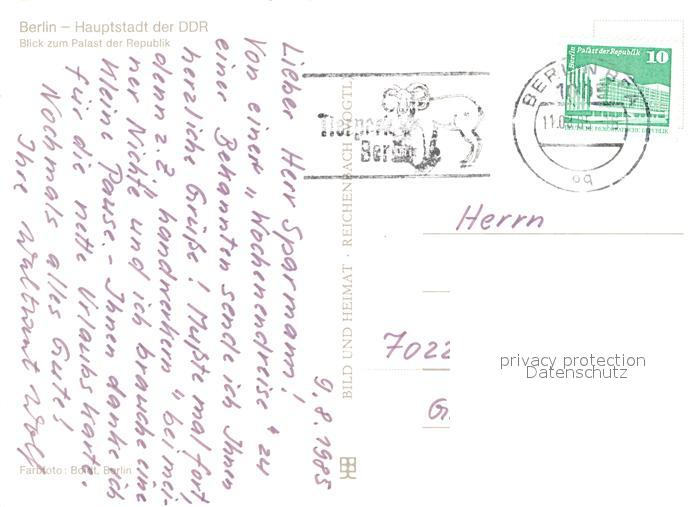 Berlin – Hauptstadt der DDR
Blick zum Palast der Republik
9.8.1985
Lieber Herr Sparmann!
Von einer "Wochenendreise" zu
einer Bekannten sende ich Ihnen
herzliche Grüße! Mußte mal fort,
denn z.Z. "handwerkern" bei mei-
ner Nichte und ich brauche eine
kleine Pause. - Ihnen danke ich
für die nette Urlaubskarte.
Nochmals alles Gute!
Ihre Waltraut Wolf
Farbfoto: Boldt, Berlin
BILD UND HEIMAT · REICHENBACH VOGTL
Tierpark
Berlin
Berlin Palast der Republik
10
DEUTSCHE DEMOKRATISCHE REPUBLIK
BERLIN
11.0
Herrn
7022
G.
privacy protection
Datenschutz